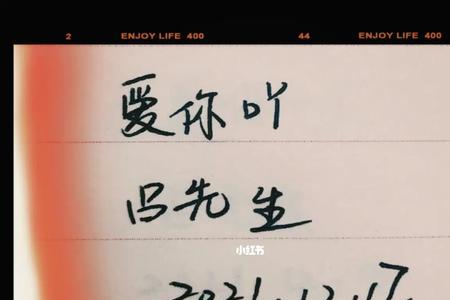 2 ENJOY LIFE 400 44 ENJOY LIFE 400
爱你吖
吕先生
小红书
2021.12.17